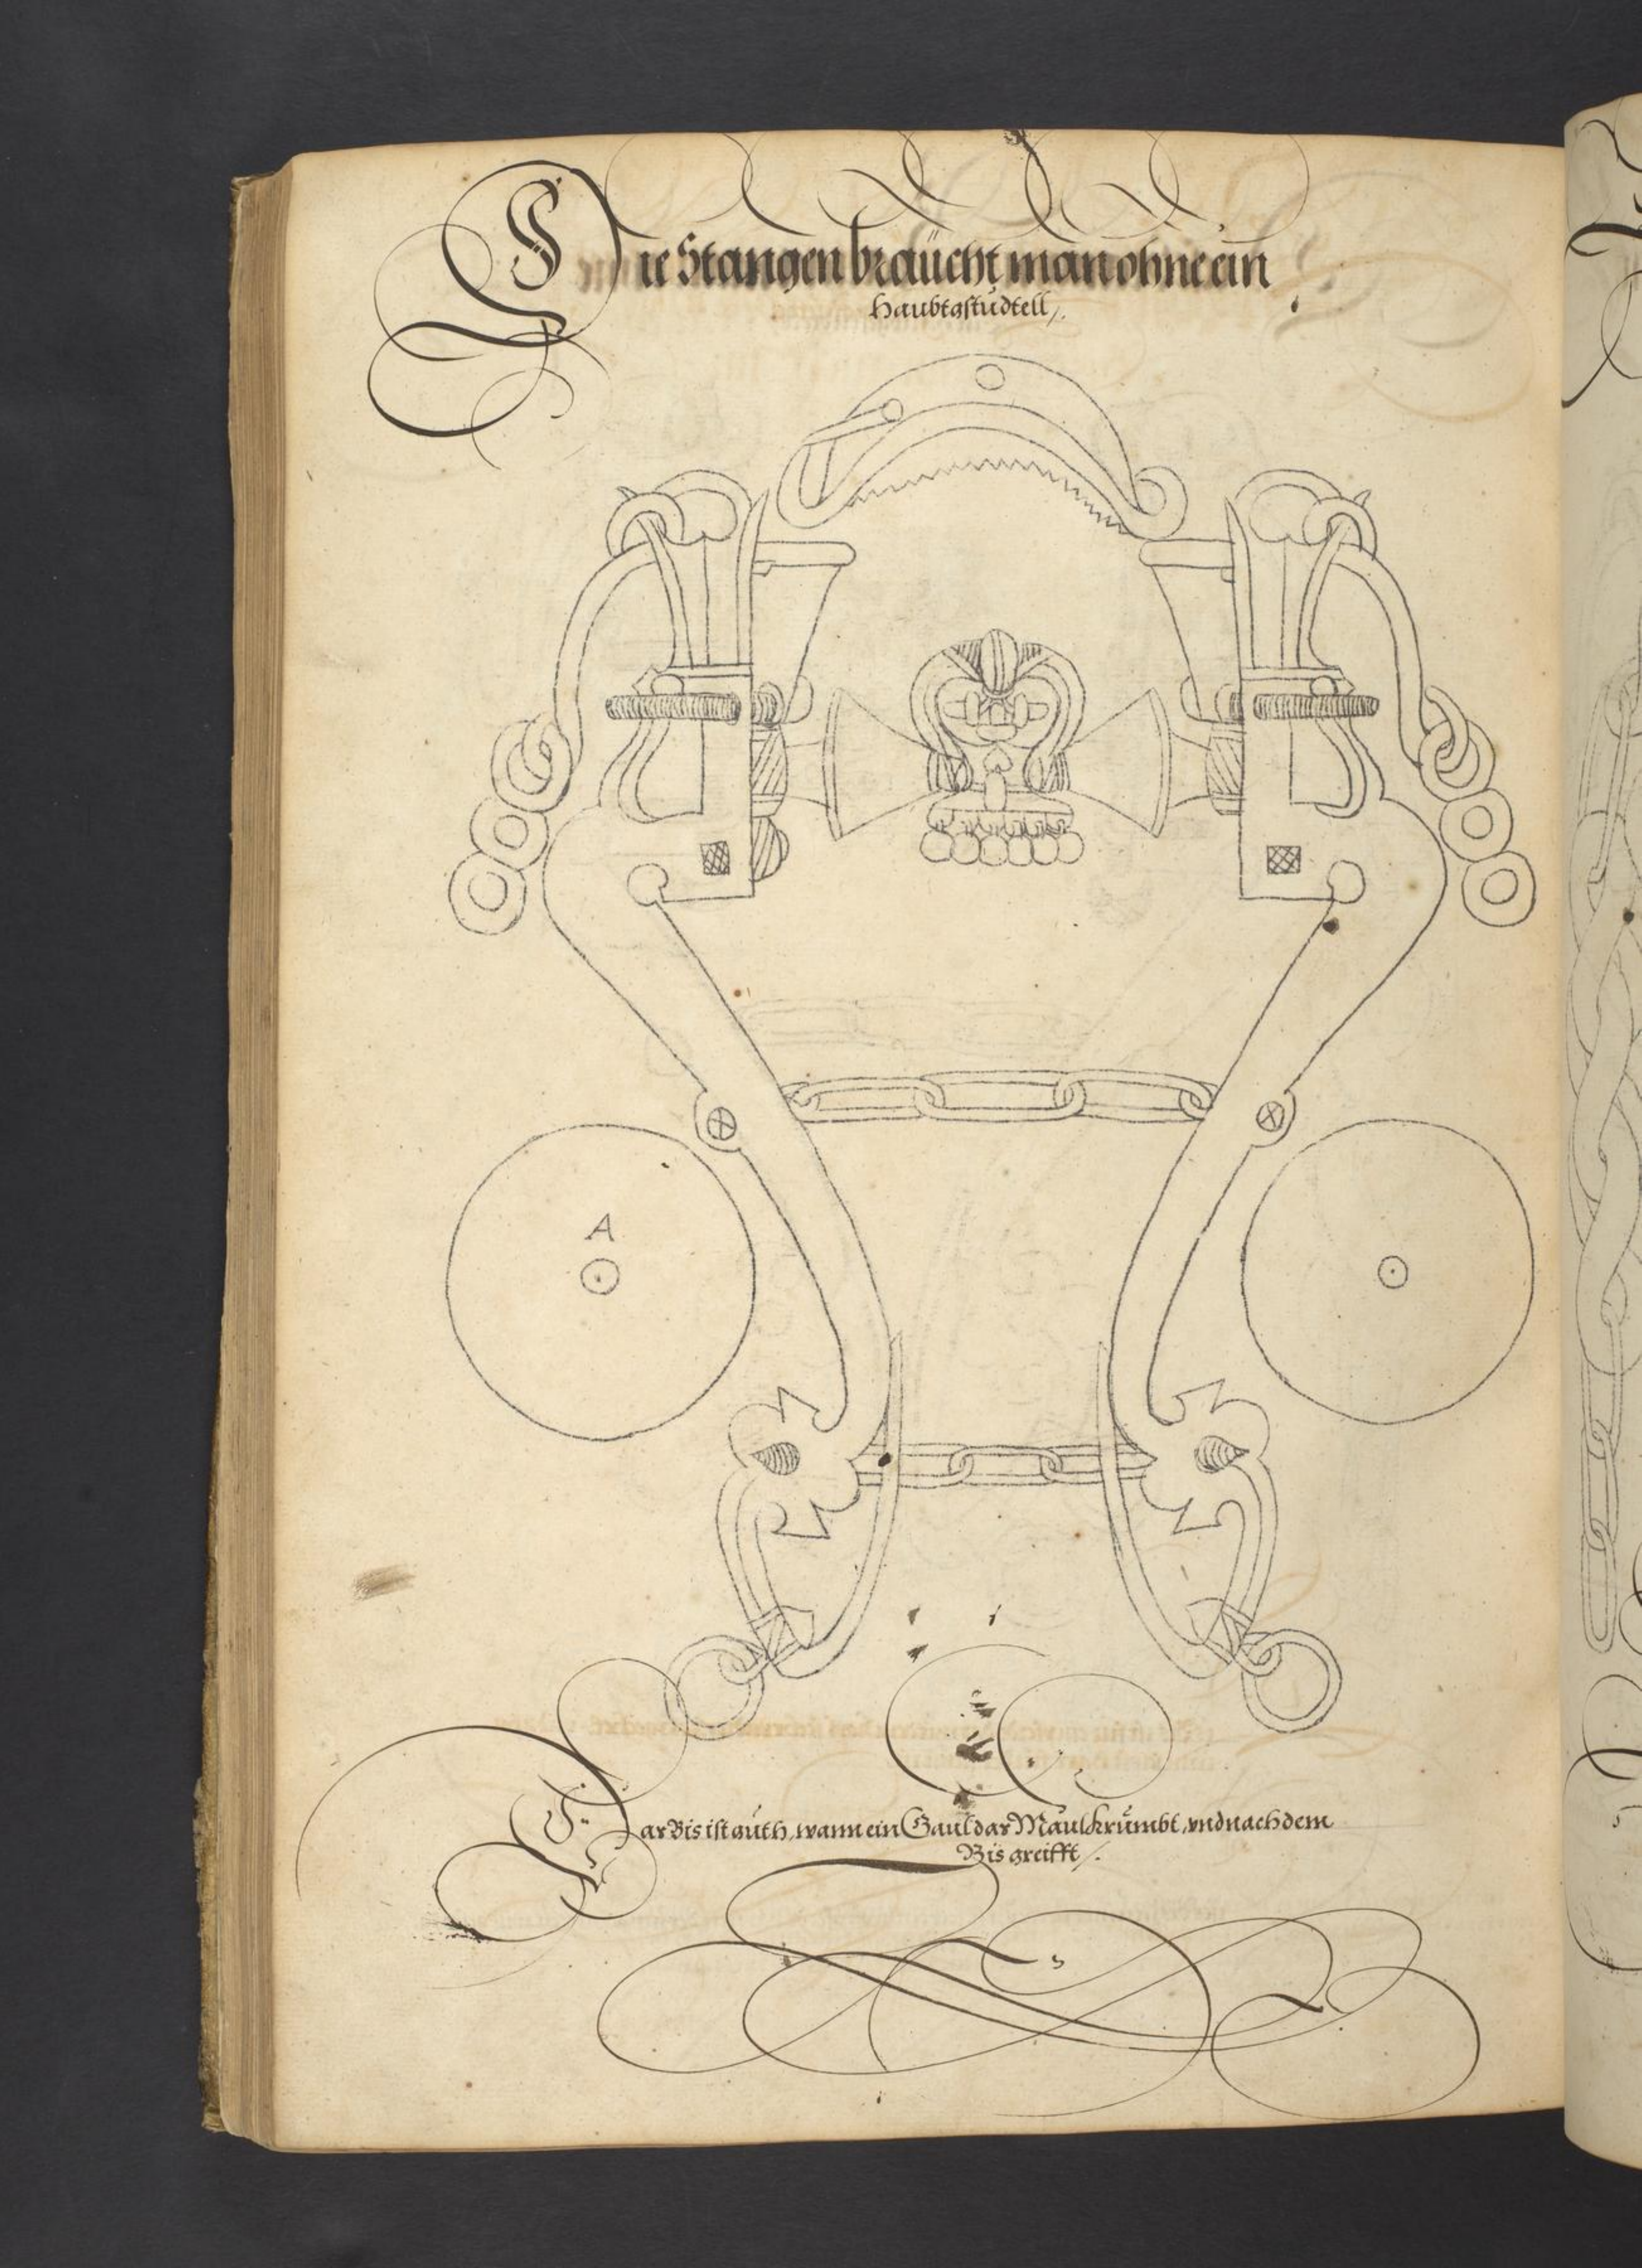 Die Stangen braücht man ohne ein
Haubtgstudtell/.
A
Dar Bis ist guth, wann ein Gaul dar Maul krümbt, vnd nach dem
Bis greifft/.